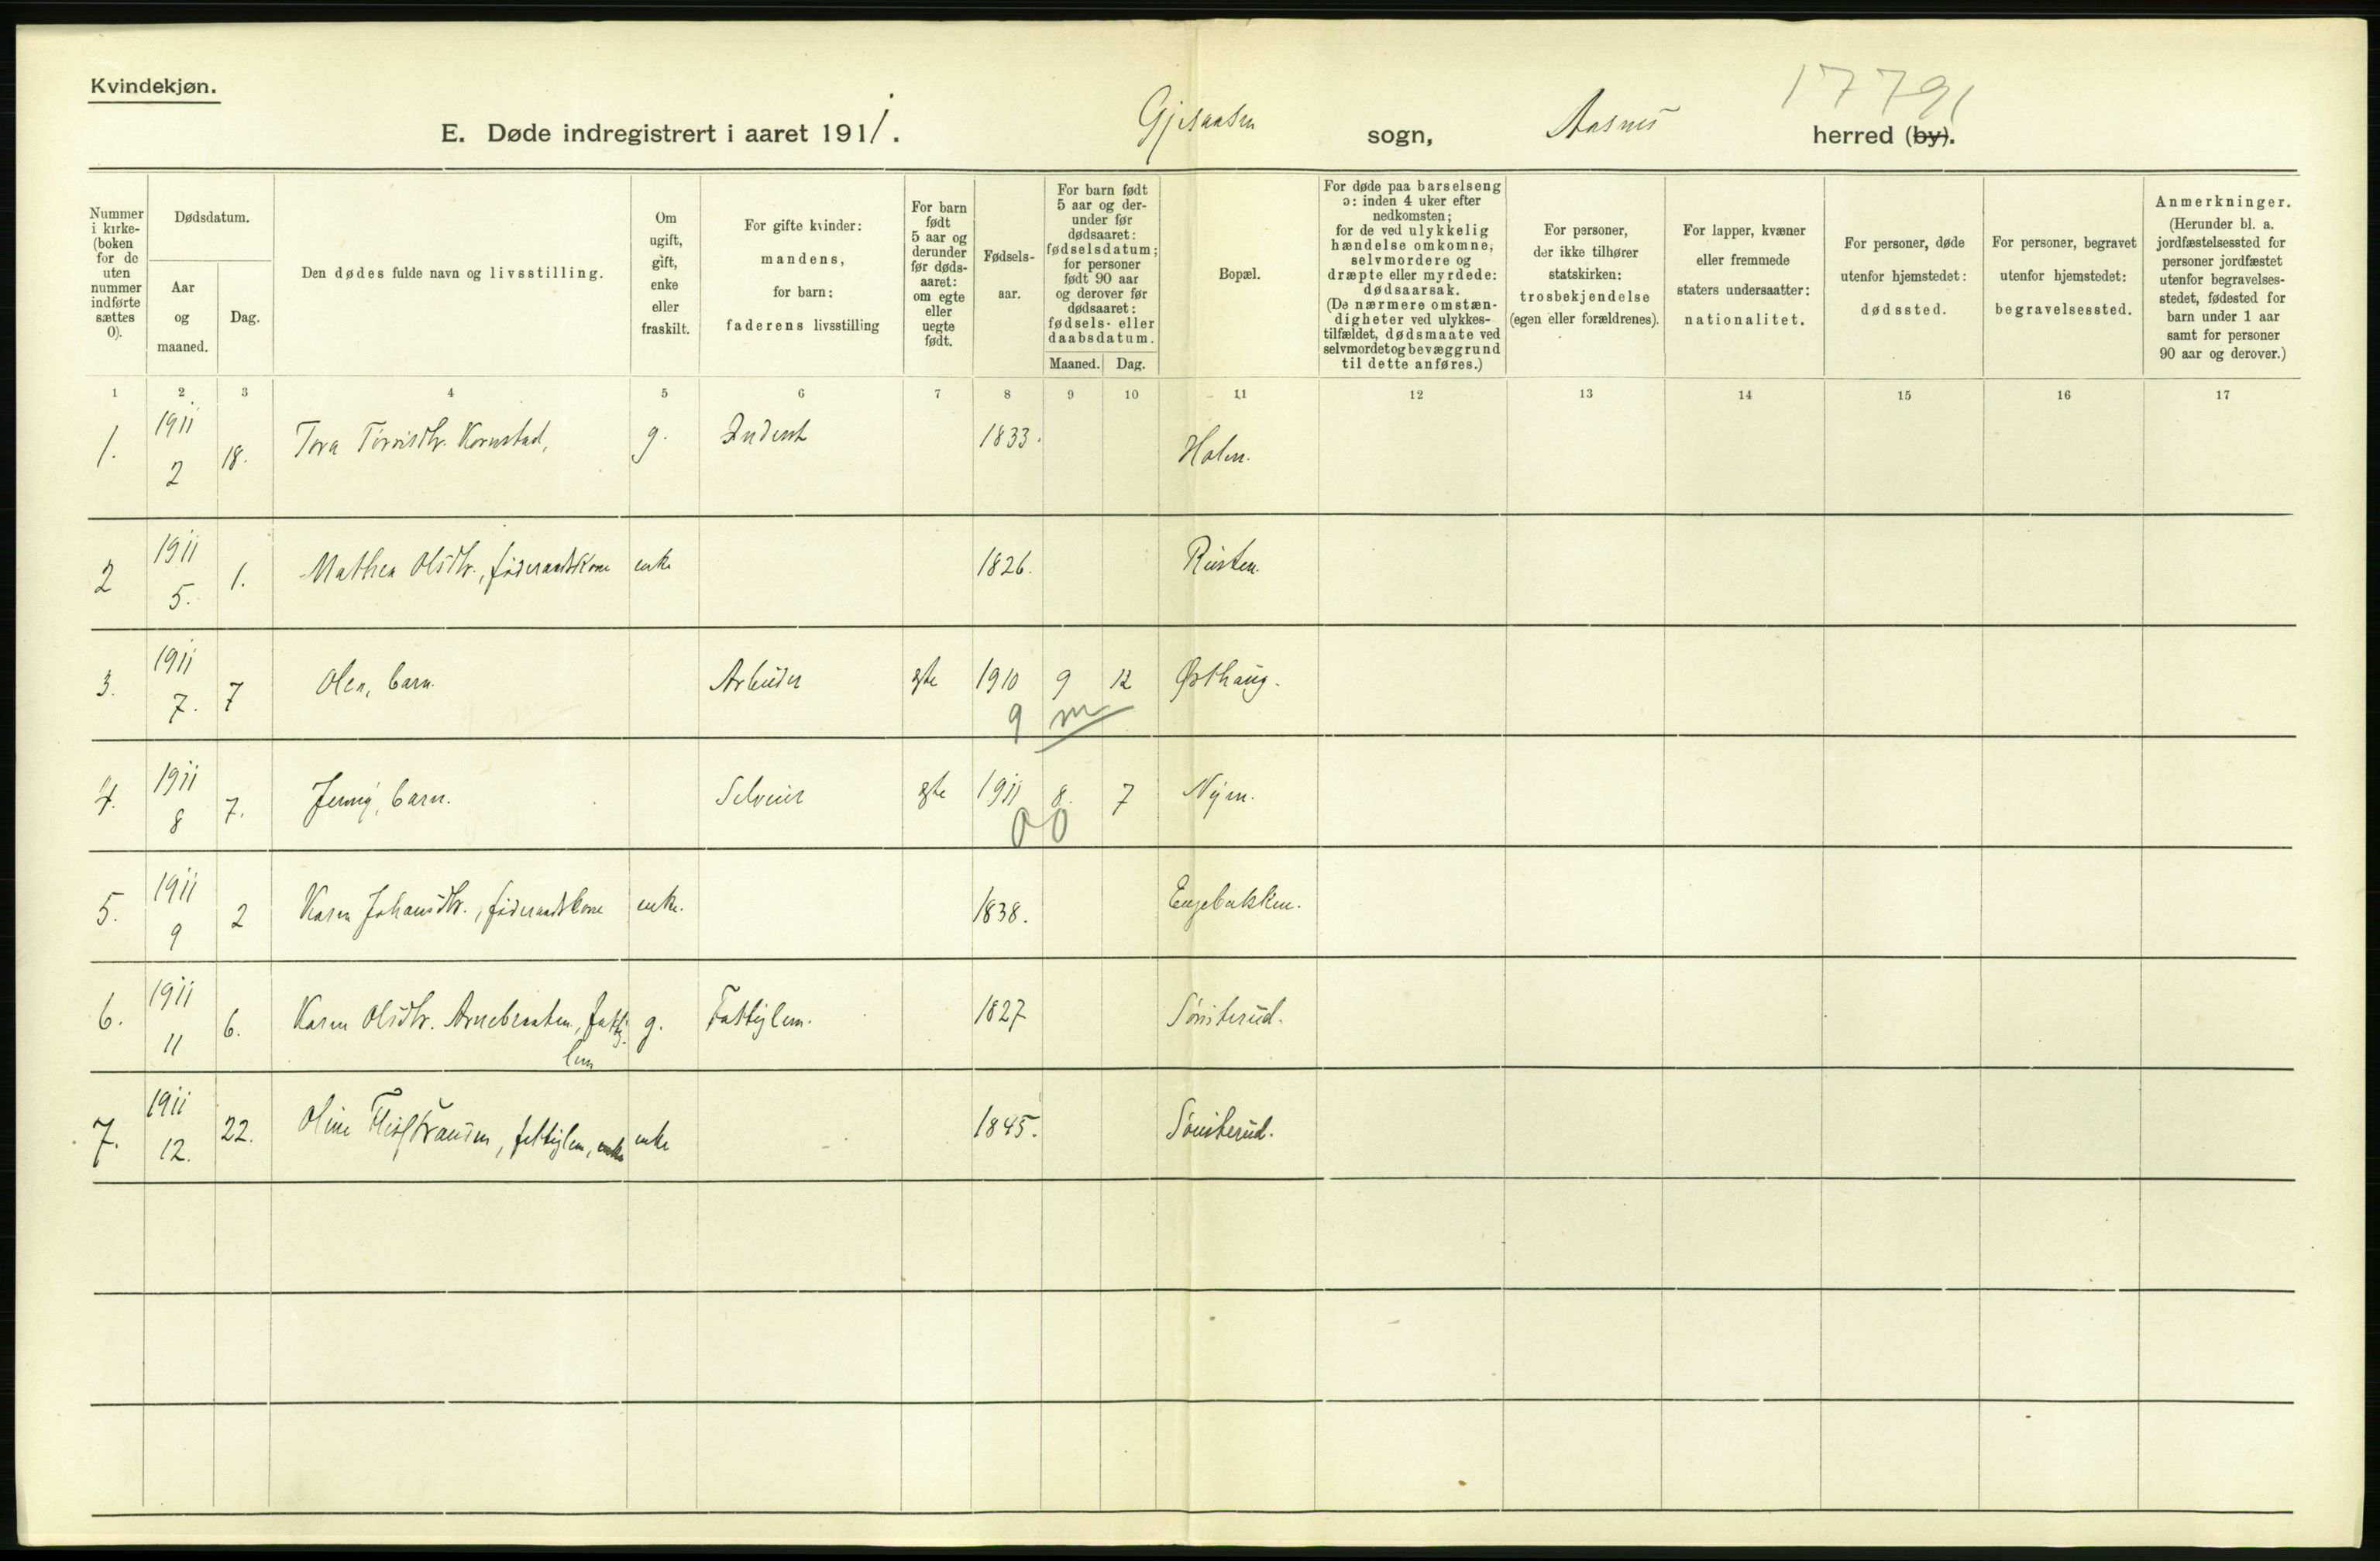 Kvindekjøn.
17791
E. Døde indregistrert i aaret 1911. Gjesaasen sogn, Aasnes herred (by).
Nummer i kirke-(boken for de uten nummer indførte sættes 0).
Dødsdatum.
Aar og maaned.
Dag.
Den dødes fulde navn og livsstilling.
Om ugift, gift, enke eller fraskilt.
For gifte kvinder: mandens, for barn: faderens livsstilling
For barn født 5 aar og derunder før dødsaaret: om egte eller uegte født.
Fødselsaar.
For barn født 5 aar og derunder før dødsaaret: fødselsdatum; for personer født 90 aar og derover før dødsaaret: fødsels- eller daabsdatum.
Maaned. Dag.
Bopæl.
For døde paa barselseng ɔ: inden 4 uker efter nedkomsten; for de ved ulykkelig hændelse omkomne, selvmordere og dræpte eller myrdede: dødsaarsak. (De nærmere omstændigheter ved ulykkestilfældet, dødsmaate ved selvmordet og bevæggrund til dette anføres.)
For personer, der ikke tilhører statskirken: trosbekjendelse (egen eller forældrenes).
For lapper, kvæner eller fremmede staters undersaatter: nationalitet.
For personer, døde utenfor hjemstedet: dødssted.
For personer, begravet utenfor hjemstedet: begravelsessted.
Anmerkninger. (Herunder bl. a. jordfæstelsessted for personer jordfæstet utenfor begravelsesstedet, fødested for barn under 1 aar samt for personer 90 aar og derover.)
1 2 3 4 5 6 7 8 9 10 11 12 13 14 15 16 17
1. 1911 2 18. Tora Torvisdtr. Kornstad, g. 1833. Holen.
2 1911 5. 1. Mathea Olsdtr., føderaadskone enke 1826. Rusten.
3. 1911 7. 7 Olea, barn. Arbeider egte 1910 9 12 Østhaug.
9 m
4. 1911 8 7. Jenny, barn. Selveier egte 1911 8. 7 Nyen.
00
5. 1911 9 2 Karen Johansdtr., føderaadskone enke. 1838. Engebakken.
6. 1911 11 6. Karen Olsdtr. Arnebraaten, fattiglem g. Fattiglem. 1827 Sønsterud.
7. 1911 12. 22. Oline, fattiglem, enke enke 1845. Sønsterud.